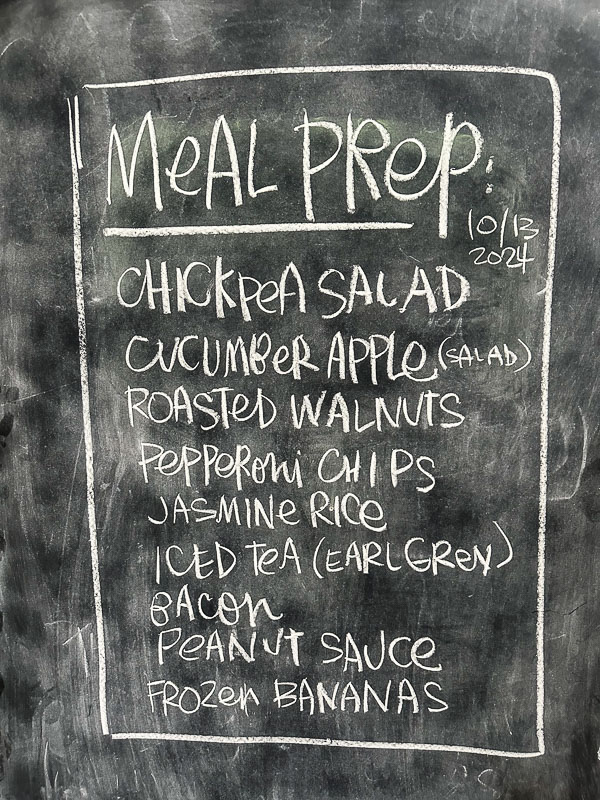 MeAL PRep:
10/13
2024
CHICKpeA SALAD
CUCUMBeR APPLe (SALAD)
ROASTeD WALNUTS
PePPeRoni CHIPS
JASMINe RICe
ICED TeA (EARL GReY)
BACON
PeANUT SAUCe
FROZen BANANAS